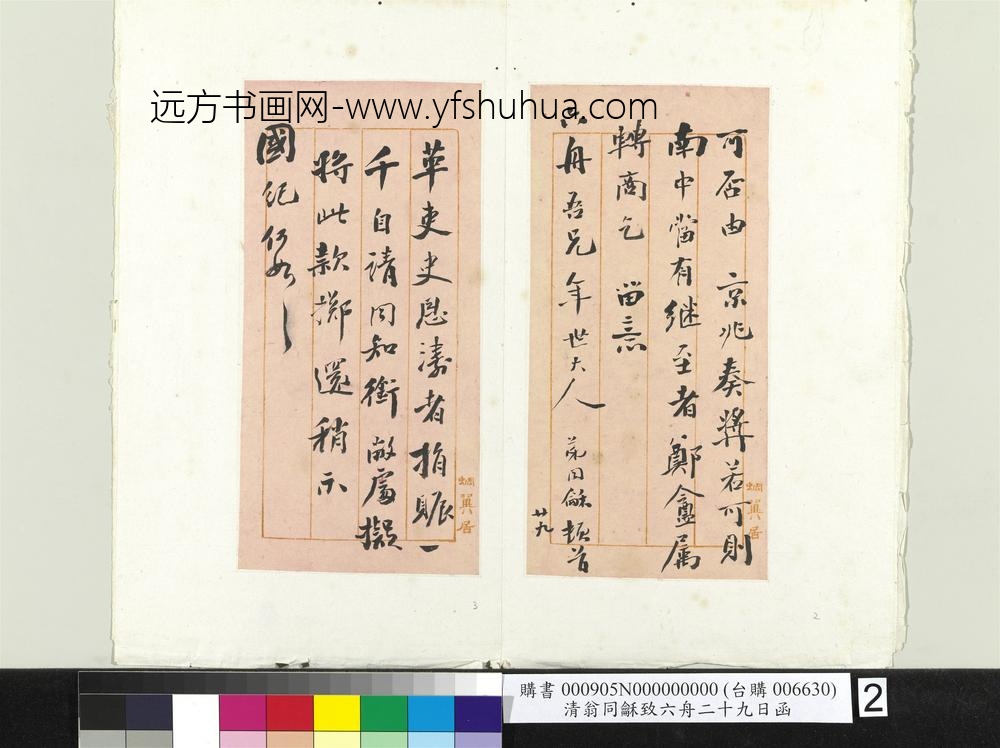 远方书画网-www.yfshuhua.com
可否由 京兆奏獎若可則
南中當有继至者鄭盦属
轉商乞 留意
六舟吾兄年世大人 同龢頓首
廿九
蜩翼居
革吏史恩濤者捐賑一
千自請同知銜敝處擬
將此款擲還稍示
國紀何如
蜩翼居
2
3
購書 000905N000000000 (台購 006630)
清翁同龢致六舟二十九日函
2